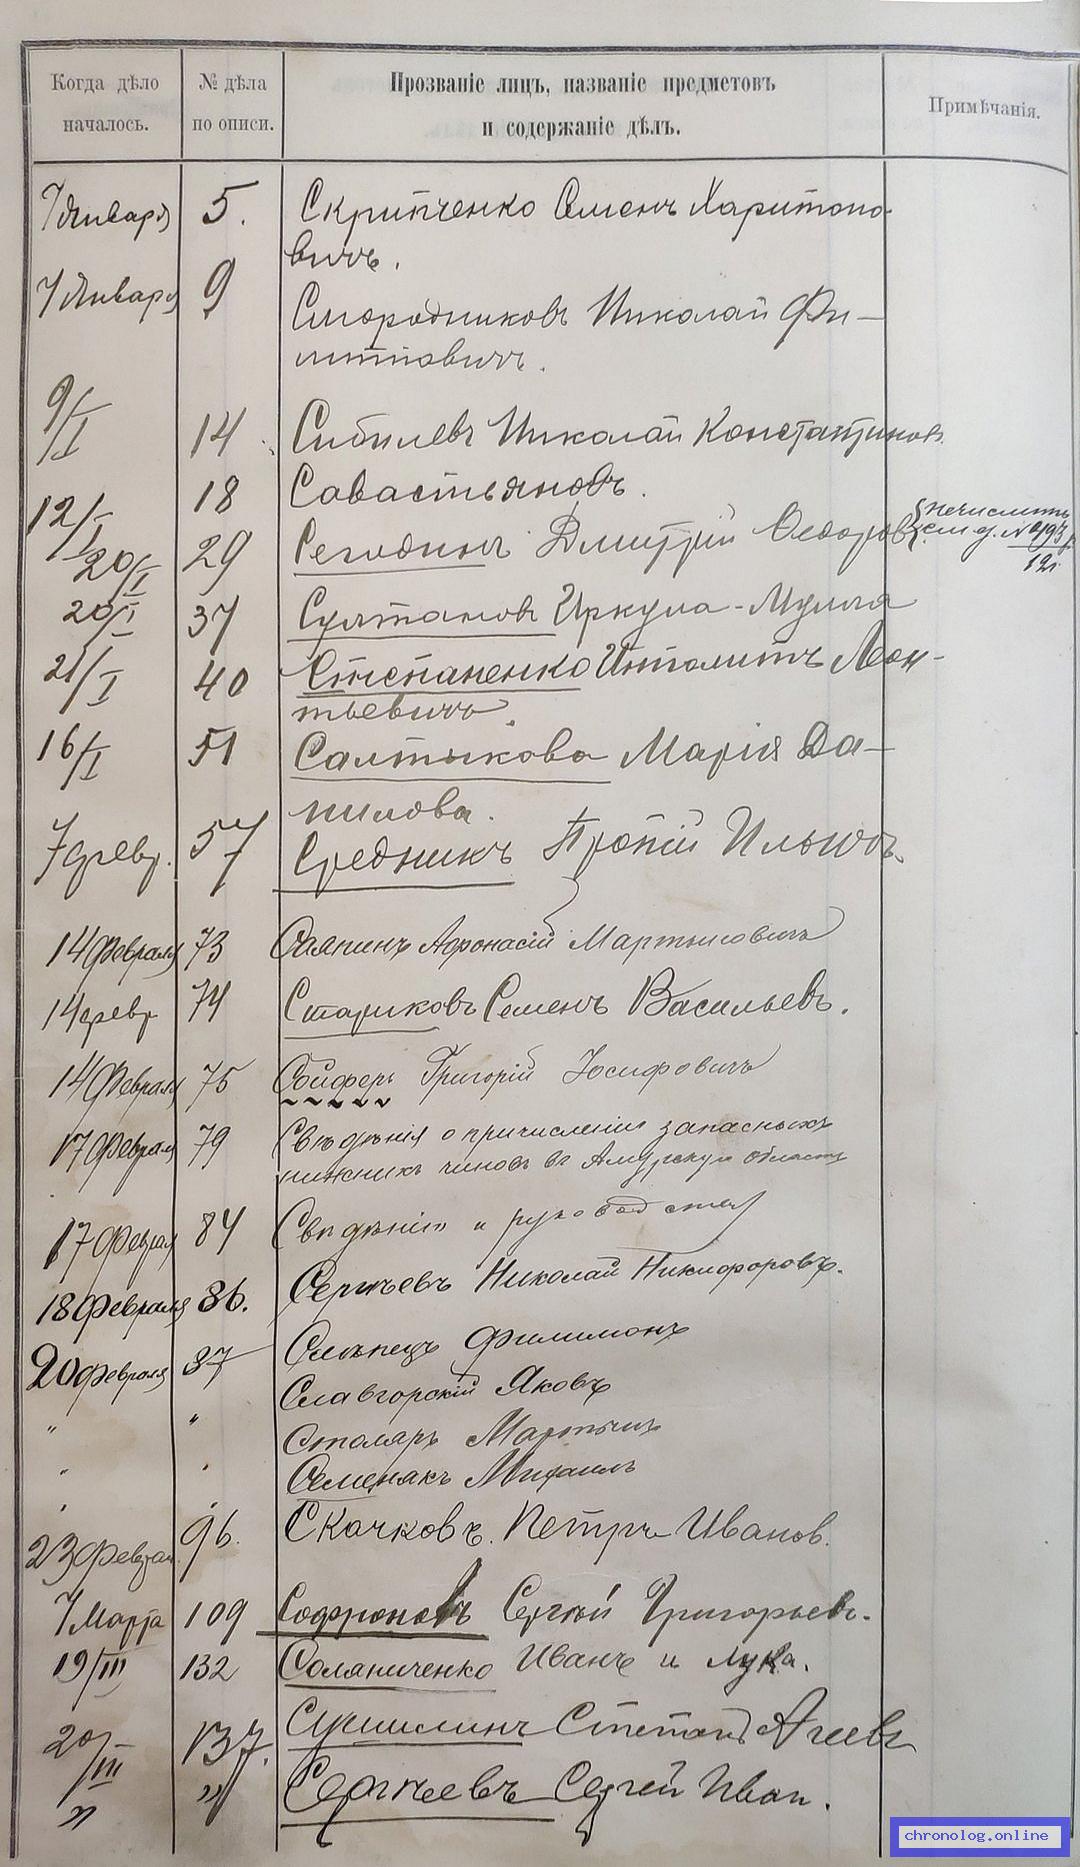 Когда дѣло началось.
№ дѣла по описи.
Прозваніе лицъ, названіе предметовъ
и содержаніе дѣлъ.
Примѣчанія.
7 Января 5. Скрипченко Семенъ Харитоно-
вичъ.
7 Января 9 Смородниковъ Николай Фи-
липповичъ.
9/I 14 Сибилевъ Николай Константинов.
12/I 18 Савастьяновъ.
20/I 29 Сегодинъ Дмитрій Ѳедоровъ
см. д. №
12
20/I 37 Султановъ Иркула-Мулла
21/I 40 Степаненко Ипполитъ Леон-
тьевичъ.
16/I 51 Салтыкова Марія Да-
нилова.
7 февр. 57 Средникъ Прокій Ильичъ.
14 Февраля 73 Саяпинъ Афонасій Мартыновичъ
14 февр 74 Стариковъ Семенъ Васильевъ.
14 Февраля 75 Сойферъ Григорій Іосифовичъ
17 Февраля 79 Свѣдѣнія о причисленіи запасныхъ
нижнихъ чиновъ въ Амурскую область
17 Февраля 84 Свѣдѣнія и
18 Февраля 86. Сергѣевъ Николай Никифоровъ.
20 Февраля 87 Слѣпецъ Филимонъ
" " Славгорскій Яковъ
" " Столяръ Мартынъ
" " Семенякъ Михаилъ
23 Февраля 96. Скачковъ Петръ Иванов.
7 Марта 109 Софроновъ Сергѣй Григорьевъ.
19/III 132 Соляниченко Иванъ и Лука.
20/III 137. Сушилинъ Степанъ Агеевъ
" " Сергѣевъ Сергѣй Иван.
chronolog.online